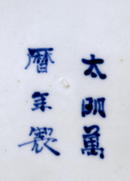 太明萬
曆年製